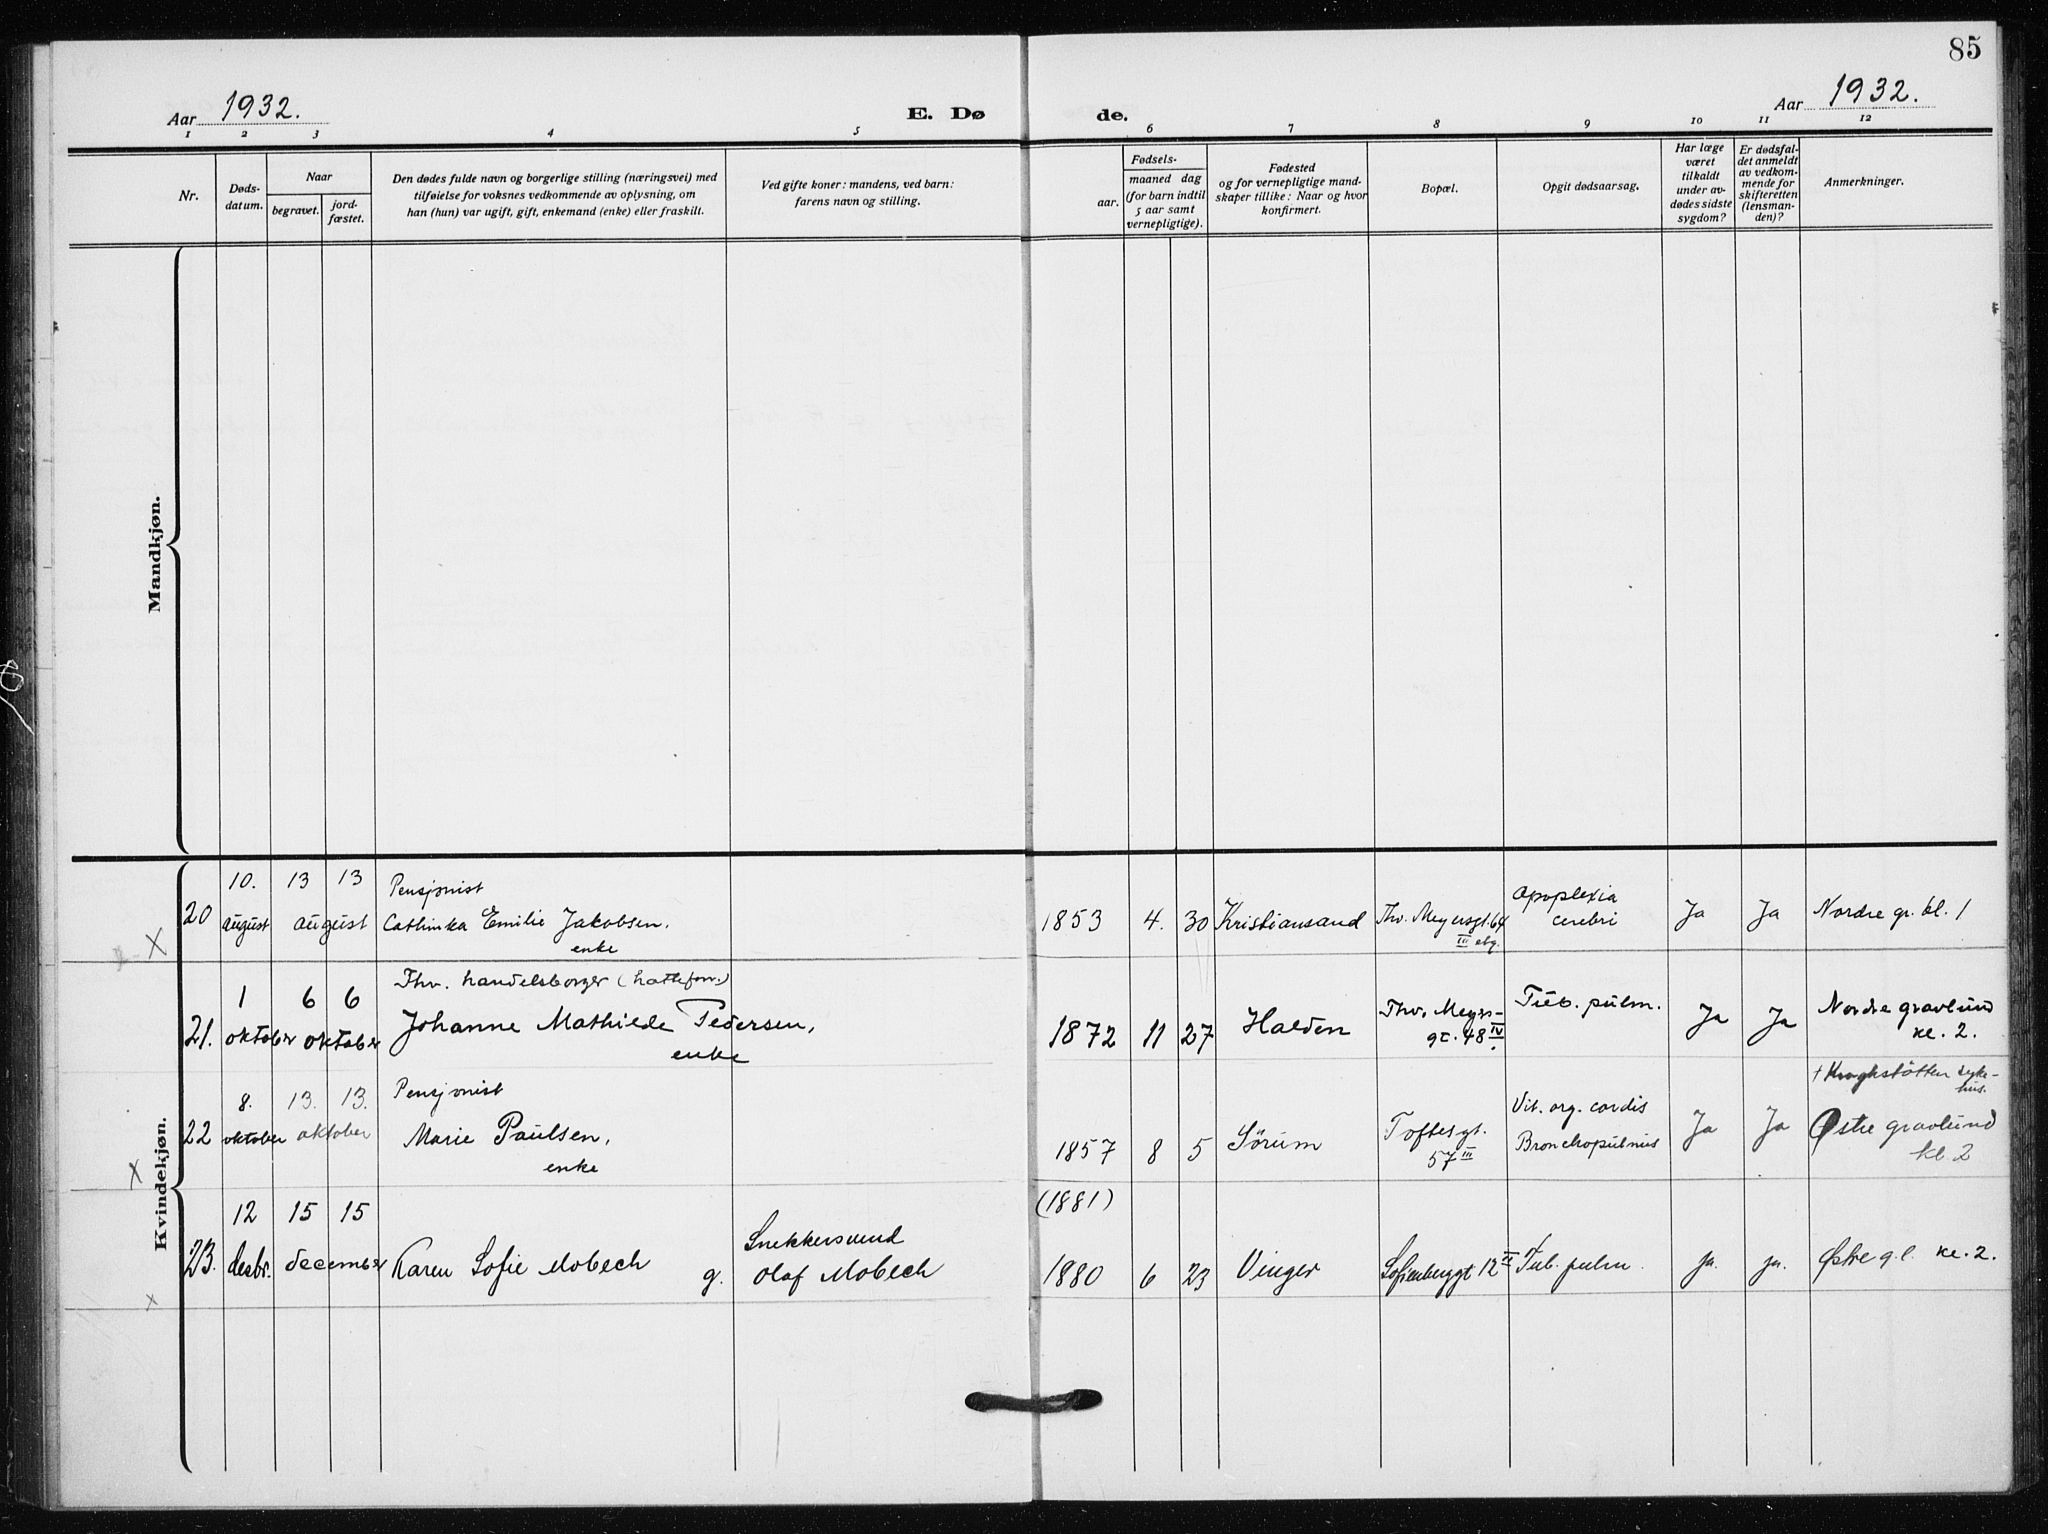 85
Aar 1932.
E. Dø
de.
Aar 1932.
1 2 3 4 5 6 7 8 9 10 11 12
Nr.
Døds-
datum.
Naar
begravet.
jord-
fæstet.
Den dødes fulde navn og borgerlige stilling (næringsvei) med
tilføielse for voksnes vedkommende av oplysning, om
han (hun) var ugift, gift, enkemand (enke) eller fraskilt.
Ved gifte koner: mandens, ved barn:
farens navn og stilling.
Fødsels-
aar.
maaned dag
(for barn indtil
5 aar samt
vernepligtige).
Fødested
og for vernepligtige mand-
skaper tillike: Naar og hvor
konfirmert.
Bopæl.
Opgit dødsaarsag.
Har læge
været
tilkaldt
under av-
dødes sidste
sygdom?
Er dødsfal-
det anmeldt
av vedkom-
mende for
skifteretten
(lensman-
den)?
Anmerkninger.
Mandkjøn.
Kvindekjøn.
10. 13 13
Pensjonist
20 august august Cathinka Emilie Jakobsen,
enke
1853 4. 30 Kristiansand Thv. Meyersgt. 64
III
Apoplexia
cerebri
Ja Ja Nordre gr. kl. 1
1 6 6
Fhv. handelsborger
21. oktober oktober Johanne Mathilde Pedersen,
enke
1872 11 27 Halden
Thv. Meyers-
gt. 48 IV
Tub. pulm.
Ja Ja
Nordre gravlund
kl. 2.
8. 13. 13.
Pensjonist
22 oktober oktober Marie Paulsen,
enke
1857 8 5 Sörum
Toftesgt.
57 III
Vit. org. cordis
Bronchopulmus
Ja Ja
+ Kroghstötten syke-
hus.
Østre gravlund
kl. 2
12 15 15
23. desbr. december Karen Sofie Mobech g.
Snekkersvend
Olaf Mobech
(1881)
1880 6 23 Vinger Sofienberggt 12 III Tub. pulm. ja. ja. Østre g.l. kl. 2.